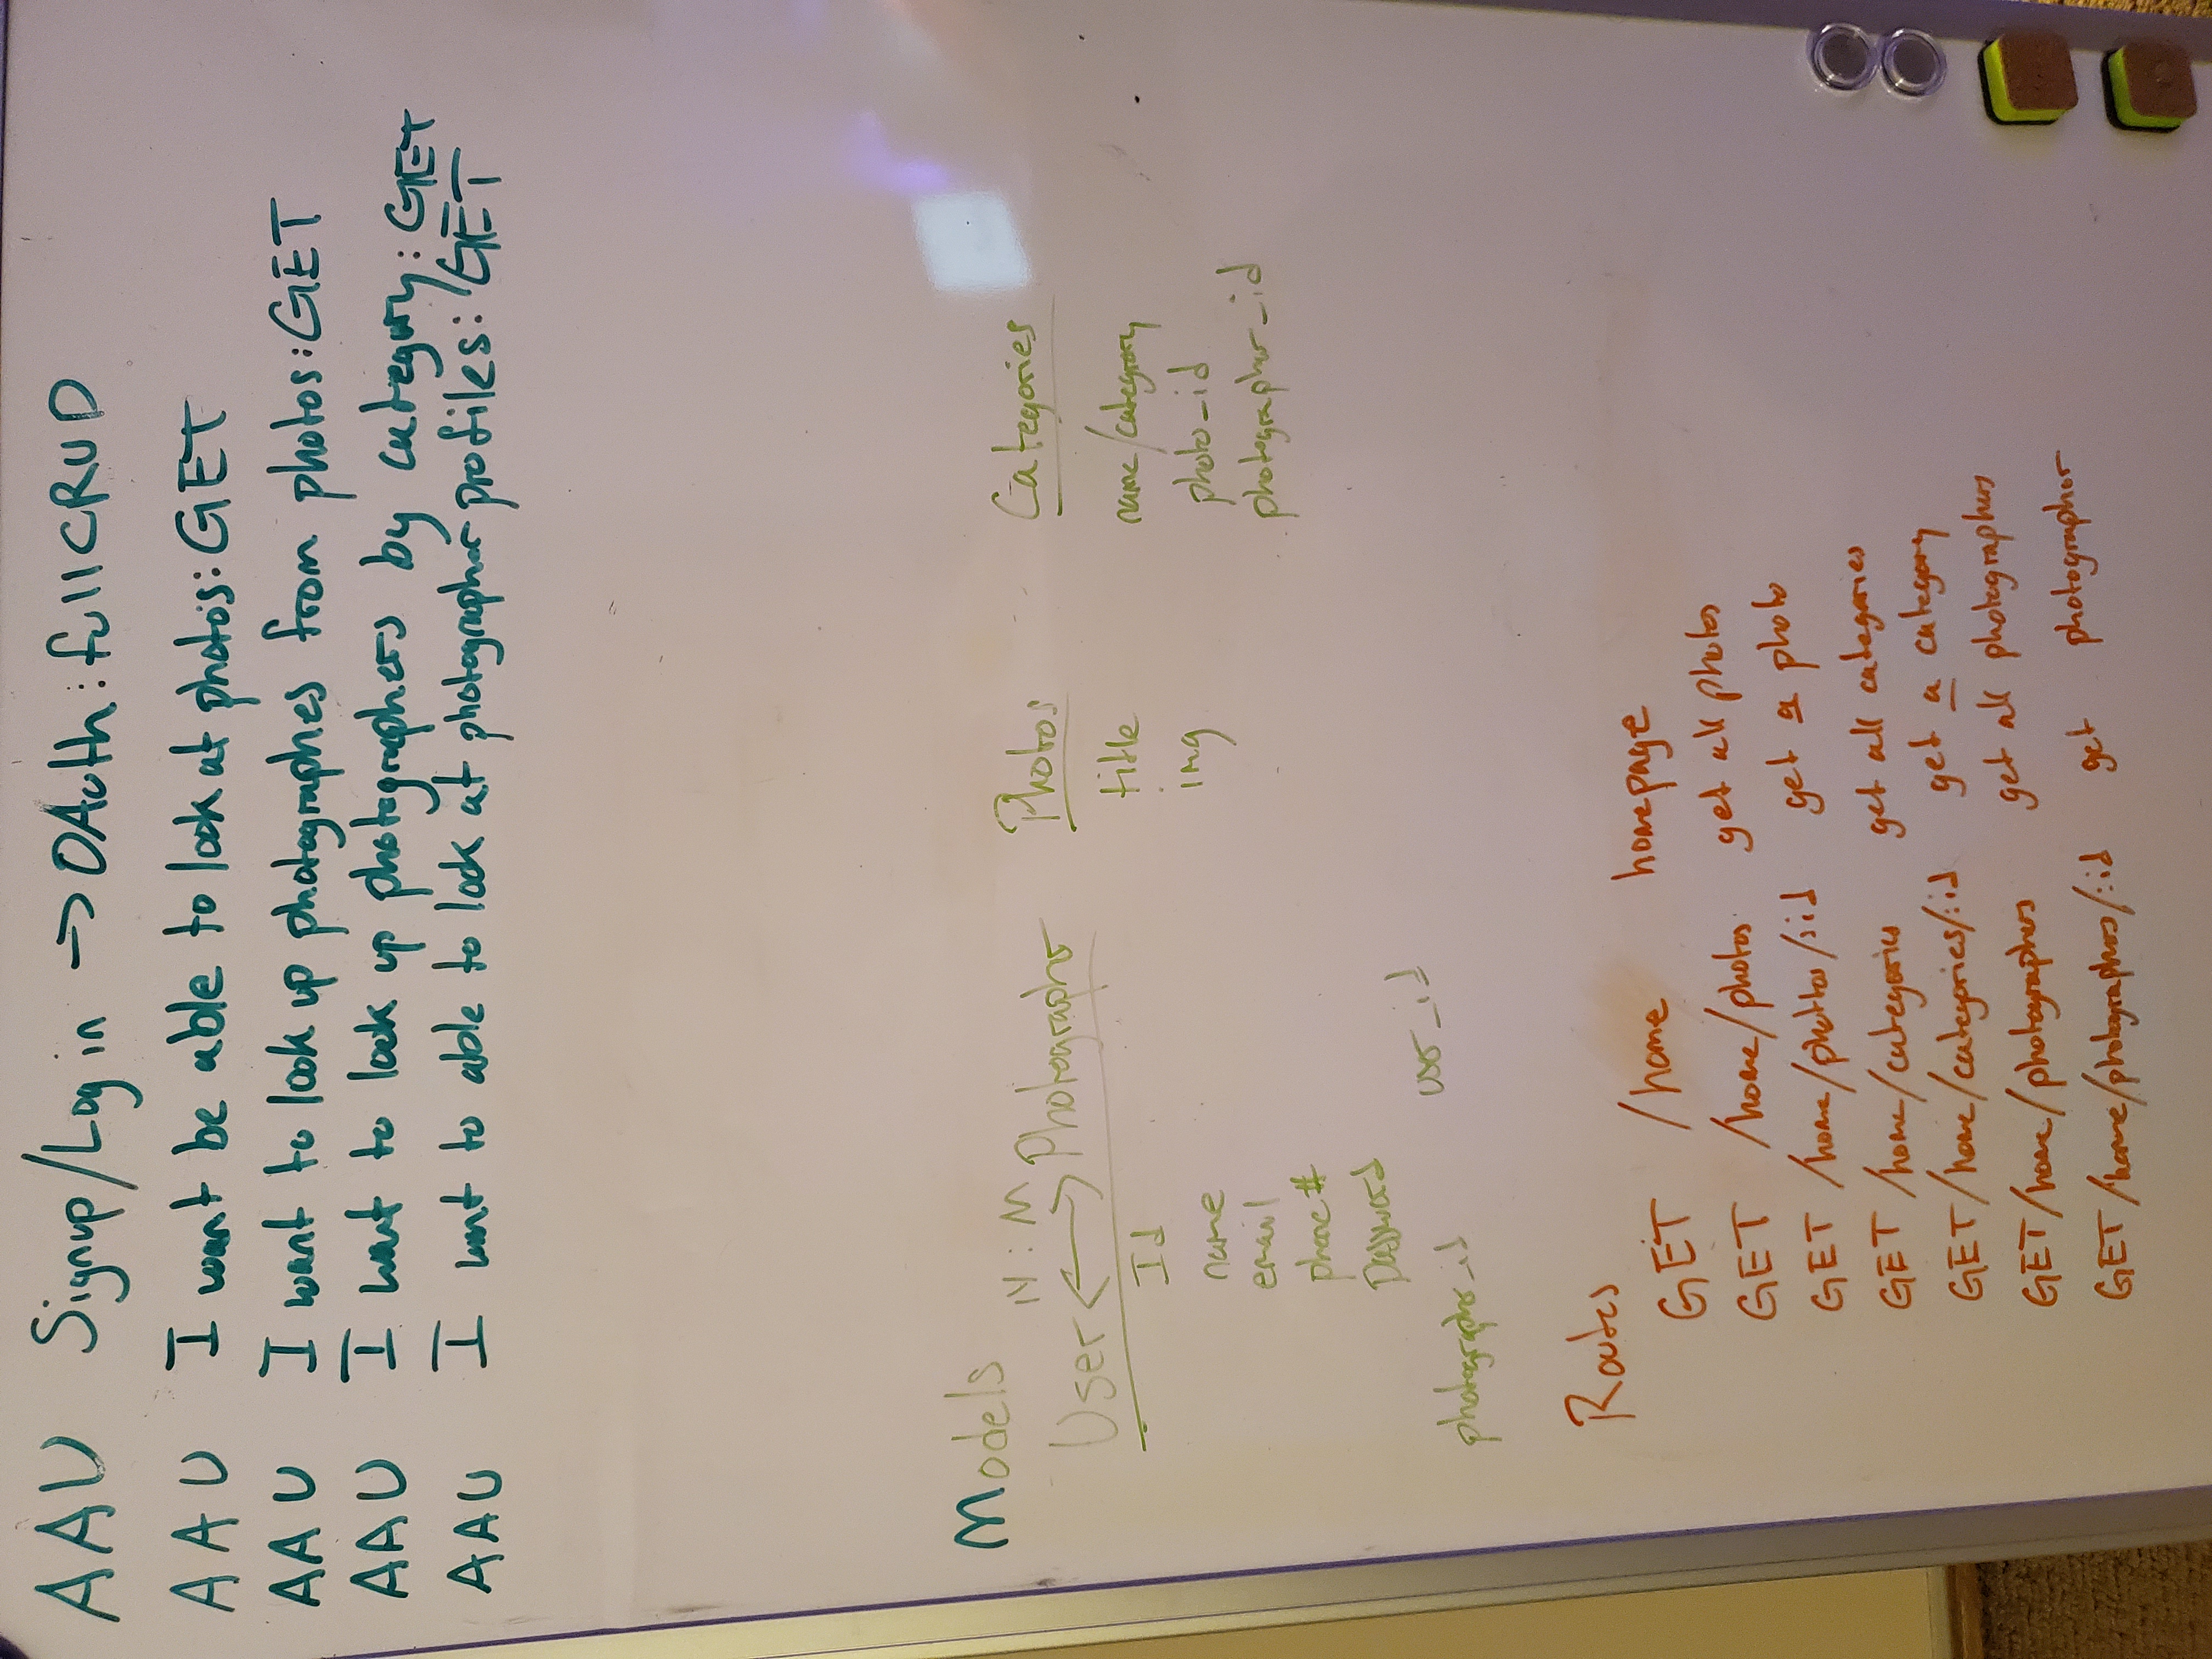 AAU Signup/Log in -> OAuth: full CRUD
AAU I want be able to look at photos: GET
AAU I want to look up photographes from photos: GET
AAU I want to look up photographers by category: GET
AAU I want to able to look at photographer profiles: GET
Models
N : M
User <-> Photographer
Photos
Categories
Id
name
email
phone #
Password
photographer_id
user_id
title
img
name/category
photo_id
photographer_id
Routes
GET /home homepage
GET /home/photos get all photos
GET /home/photos/:id get a photo
GET /home/categories get all categories
GET /home/categories/:id get a category
GET /home/photographers get all photographers
GET /home/photographers/:id get photographer